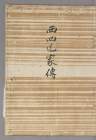 西四辻家傳